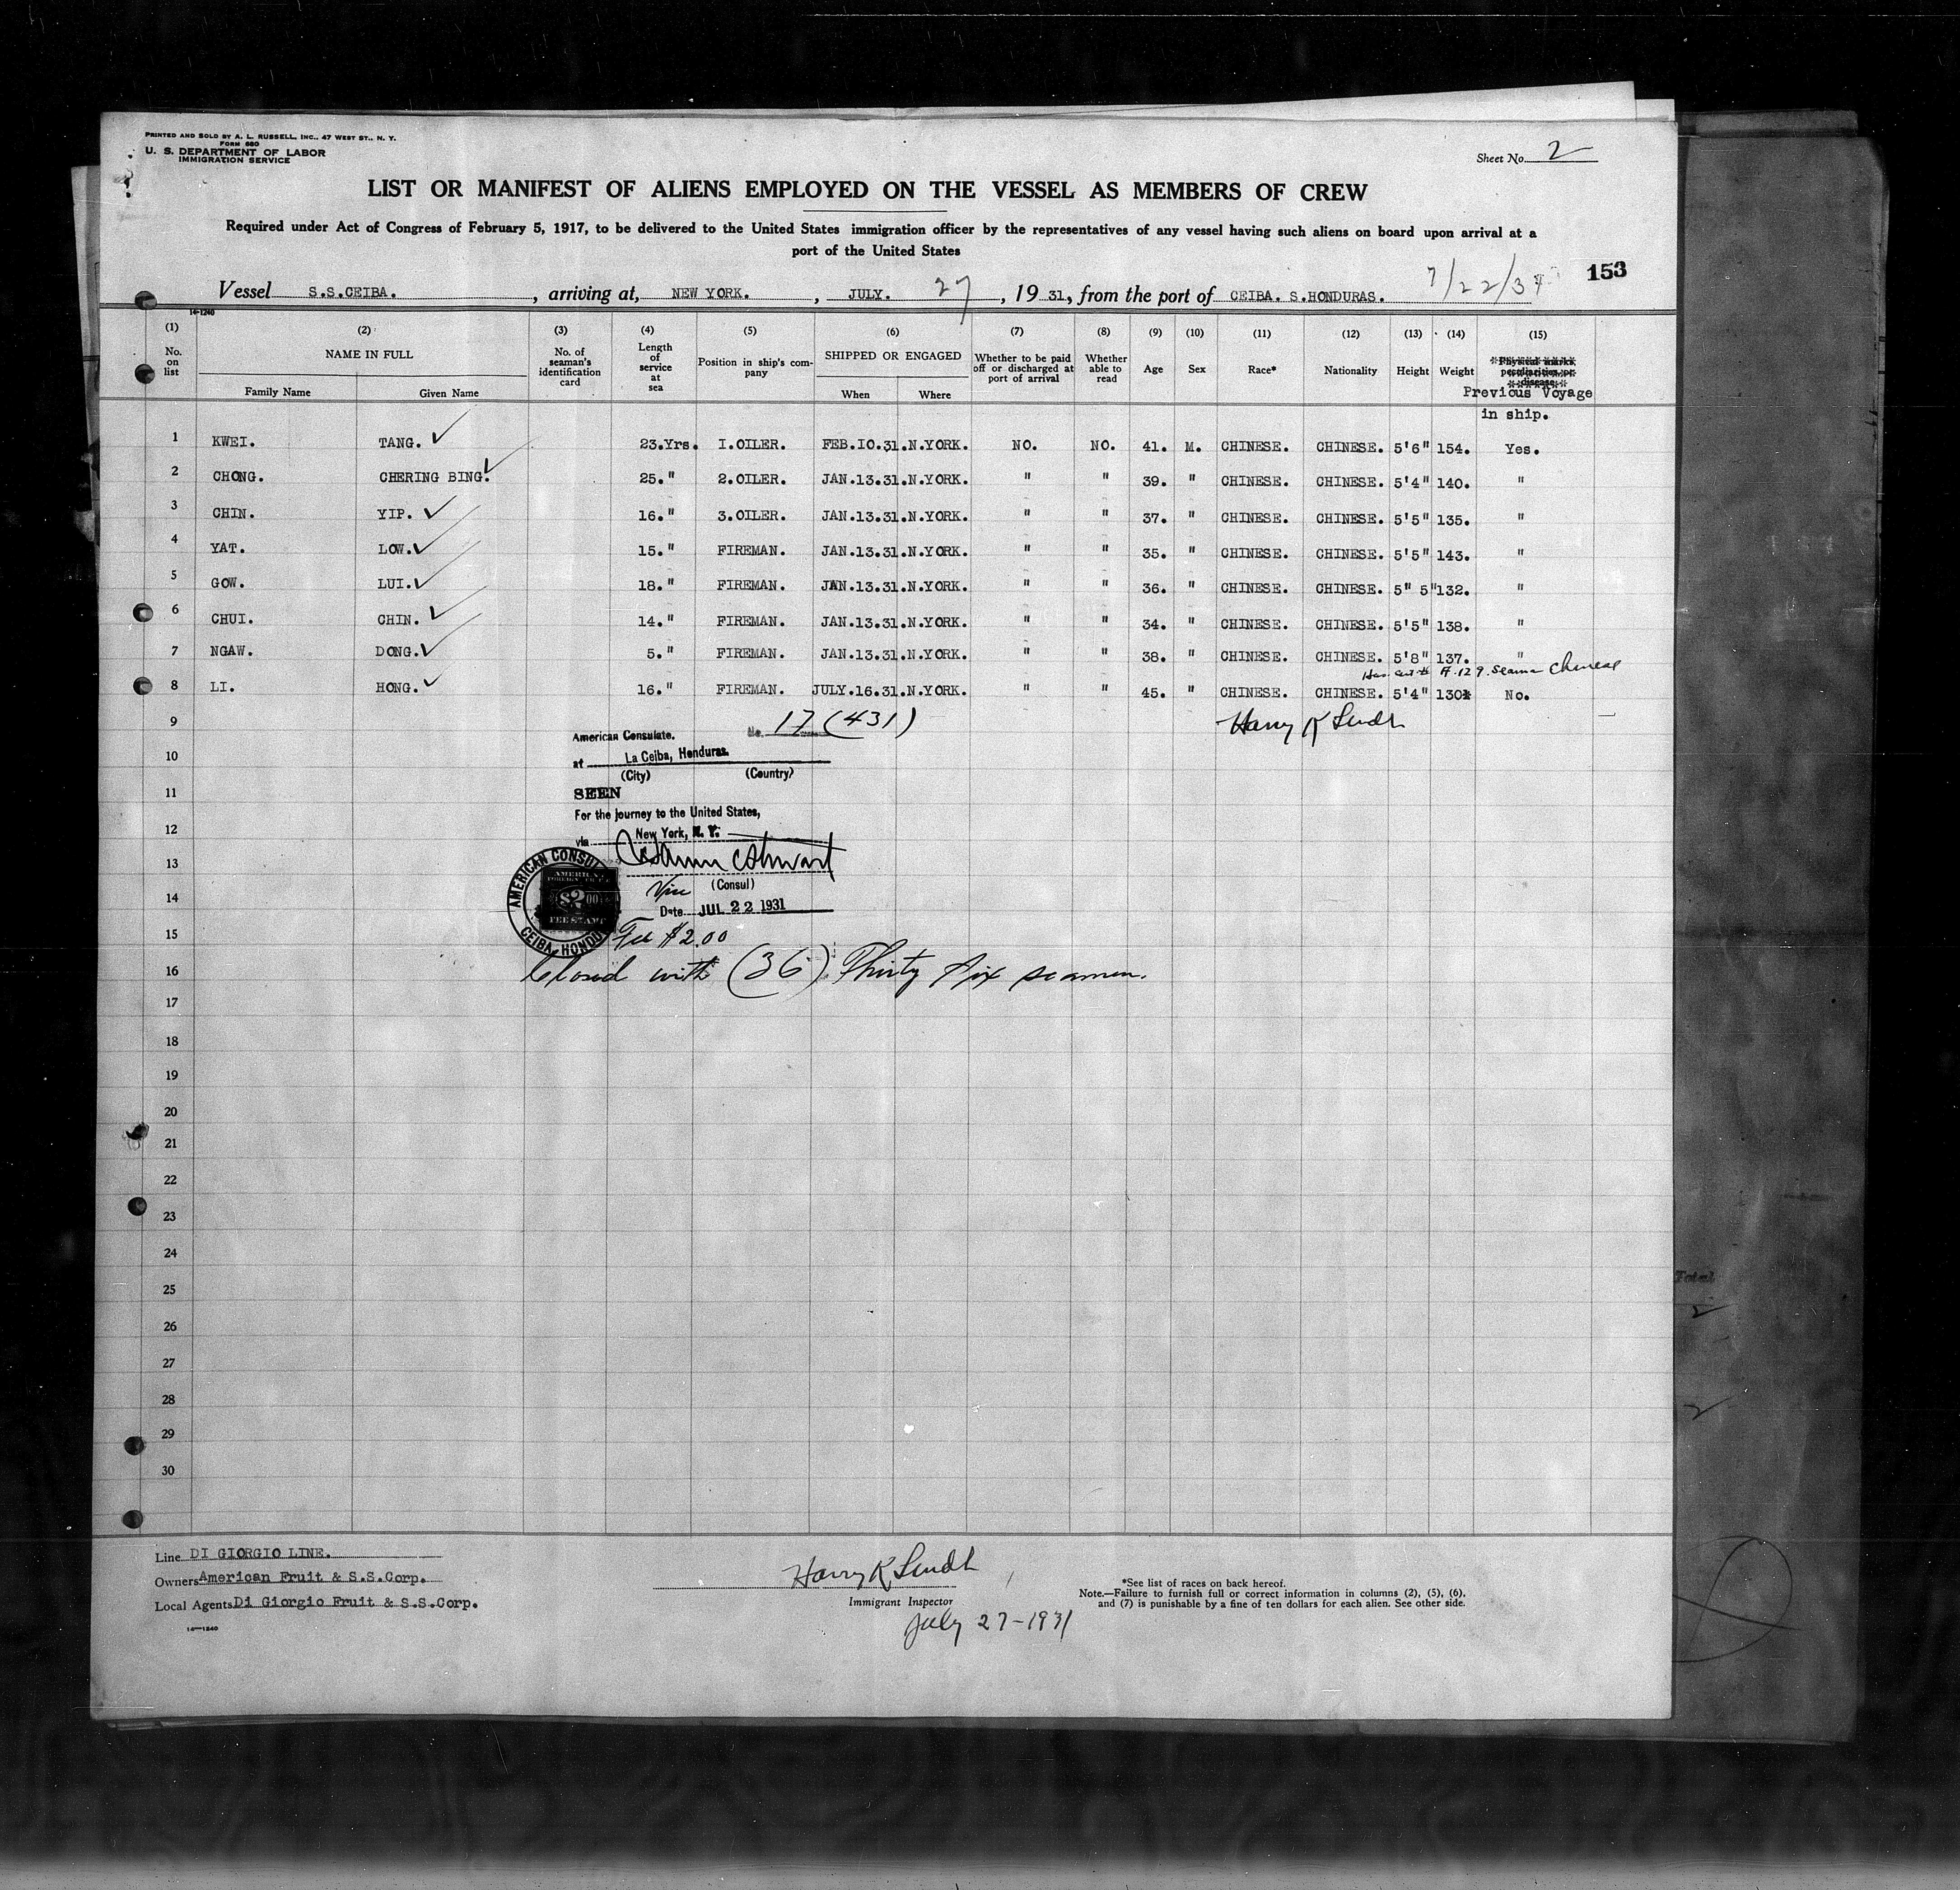 PRINTED AND SOLD BY A. L. RUSSELL, INC., 47 WEST ST., N. Y.
FORM 680
U. S. DEPARTMENT OF LABOR
IMMIGRATION SERVICE
Sheet No. 2
LIST OR MANIFEST OF ALIENS EMPLOYED ON THE VESSEL AS MEMBERS OF CREW
Required under Act of Congress of February 5, 1917, to be delivered to the United States immigration officer by the representatives of any vessel having such aliens on board upon arrival at a
port of the United States
153
Vessel S.S.CEIBA. , arriving at, NEW YORK. , JULY. 27 , 19 31, from the port of CEIBA. S.HONDURAS. 7/22/31
14-1240
(1) (2) (3) (4) (5) (6) (7) (8) (9) (10) (11) (12) (13) (14) (15)
No. on list NAME IN FULL Family Name Given Name No. of seaman's identification card Length of service at sea Position in ship's company SHIPPED OR ENGAGED When Where Whether to be paid off or discharged at port of arrival Whether able to read Age Sex Race* Nationality Height Weight Physical marks, peculiarities or disease Previous Voyage in ship.
1 KWEI. TANG. 23.Yrs. 1.OILER. FEB.10.31.N.YORK. NO. NO. 41. M. CHINESE. CHINESE. 5'6" 154. Yes.
2 CHONG. CHERING BING. 25." 2.OILER. JAN.13.31.N.YORK. " " 39. " CHINESE. CHINESE. 5'4" 140. "
3 CHIN. YIP. 16." 3.OILER. JAN.13.31.N.YORK. " " 37. " CHINESE. CHINESE. 5'5" 135. "
4 YAT. LOW. 15." FIREMAN. JAN.13.31.N.YORK. " " 35. " CHINESE. CHINESE. 5'5" 143. "
5 GOW. LUI. 18." FIREMAN. JAN.13.31.N.YORK. " " 36. " CHINESE. CHINESE. 5" 5" 132. "
6 CHUI. CHIN. 14." FIREMAN. JAN.13.31.N.YORK. " " 34. " CHINESE. CHINESE. 5'5" 138. "
7 NGAW. DONG. 5." FIREMAN. JAN.13.31.N.YORK. " " 38. " CHINESE. CHINESE. 5'8" 137. "
Has cert # A.129. seaman Chinese
8 LI. HONG. 16." FIREMAN. JULY.16.31.N.YORK. " " 45. " CHINESE. CHINESE. 5'4" 130. No.
9
Harry K
No. 17 (431)
American Consulate.
10
at La Ceiba, Honduras.
(City) (Country)
11
SEEN
For the journey to the United States,
12
via New York, N. Y.
13
(Consul)
Vice
14
Date JUL 22 1931
AMERICAN CONSUL
CEIBA, HONDU
AMERICAN
FOREIGN SERVICE
$2.00
FEE STAMP
15
Fee $2.00
16
Closed with (36) Thirty six seamen.
17
18
19
20
21
22
23
24
25
26
27
28
29
30
Total
2
2
Line DI GIORGIO LINE.
Owners American Fruit & S.S.Corp.
Local Agents Di Giorgio Fruit & S.S.Corp.
14-1240
Harry K
Immigrant Inspector
July 27-1931
*See list of races on back hereof.
Note.—Failure to furnish full or correct information in columns (2), (5), (6),
and (7) is punishable by a fine of ten dollars for each alien. See other side.